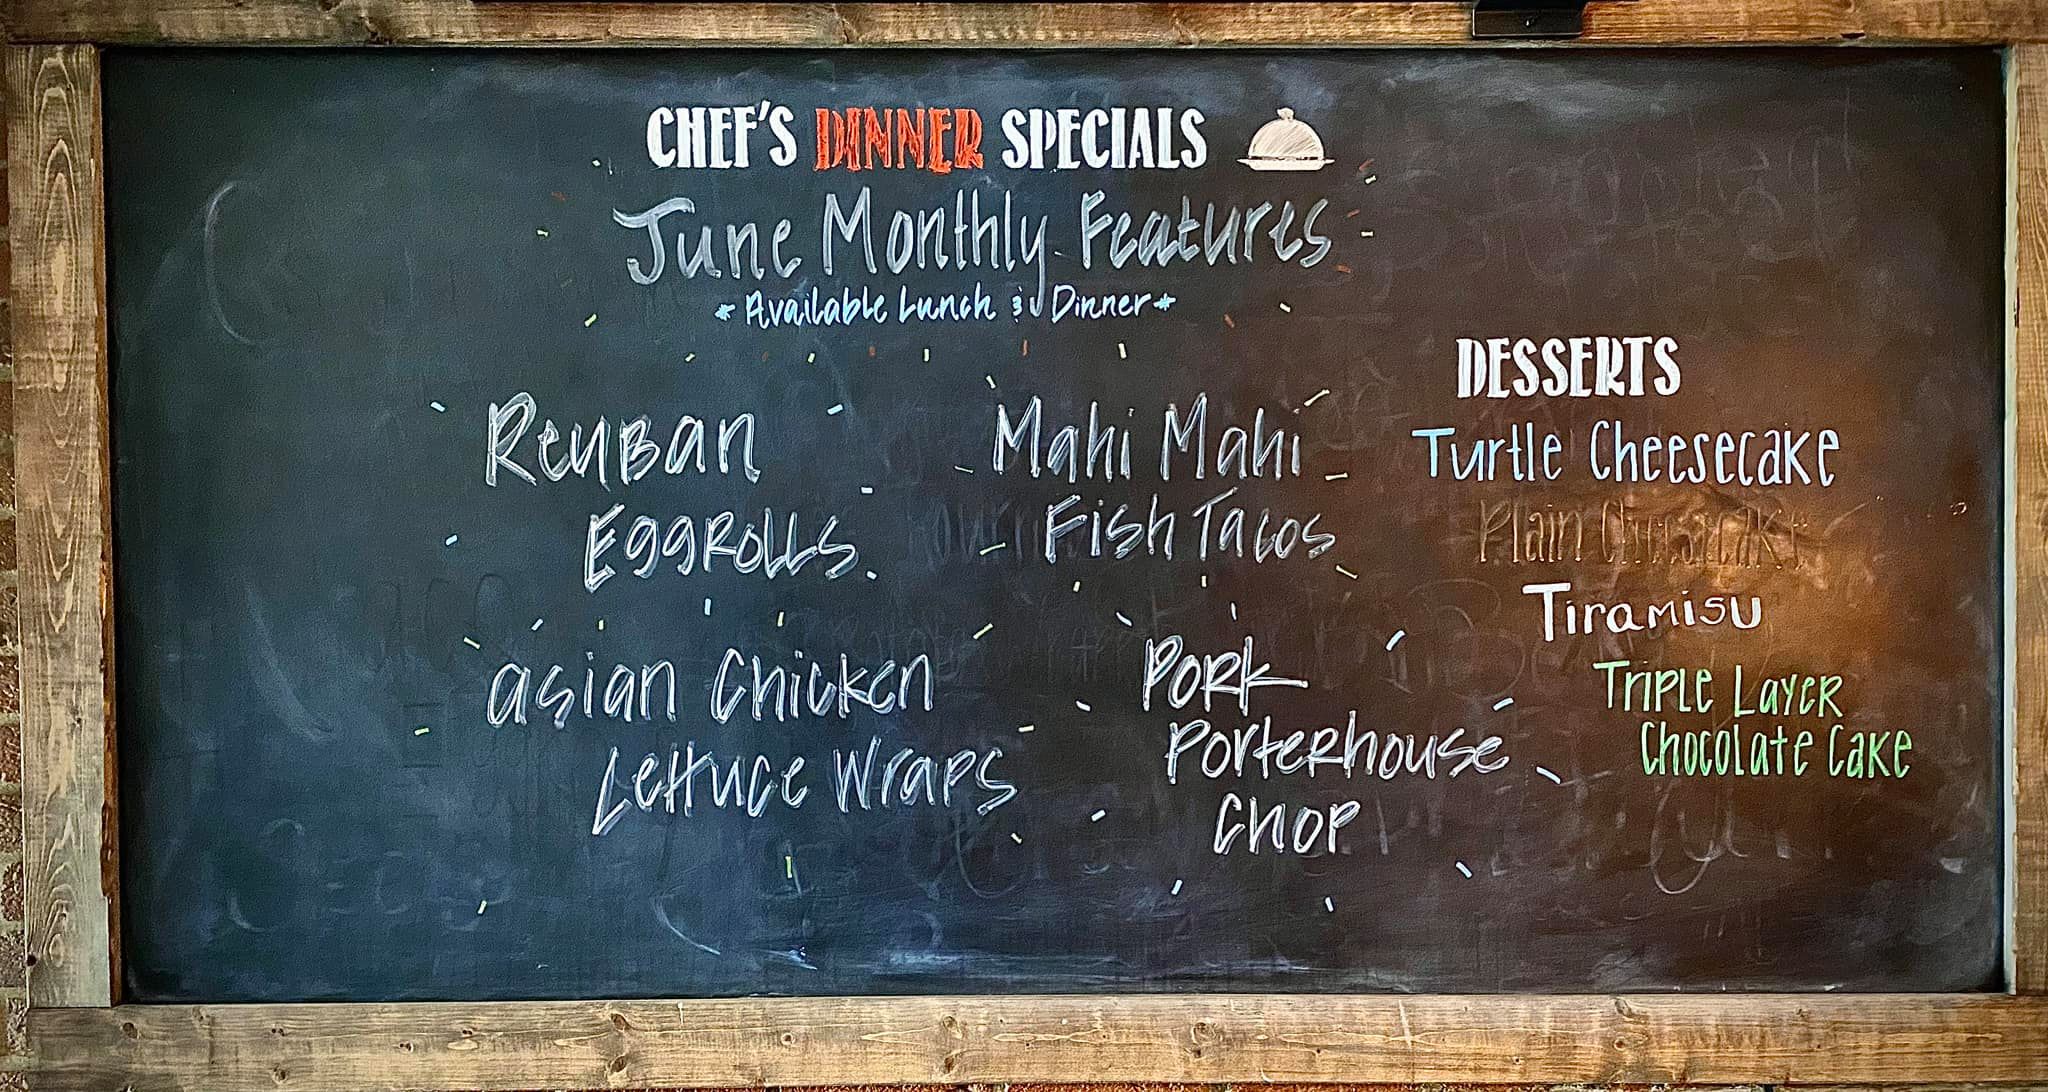 CHEF'S DINNER SPECIALS
June Monthly Features
*Available Lunch & Dinner*
ReuBan
EggRolls
Mahi Mahi
Fish Tacos
asian Chicken
Lettuce Wraps
PORK
PorteRhouse
CHOP
DESSERTS
Turtle Cheesecake
Plain Cheesecake
Tiramisu
TRIPLE LAYER
CHOCOLATE CAKE